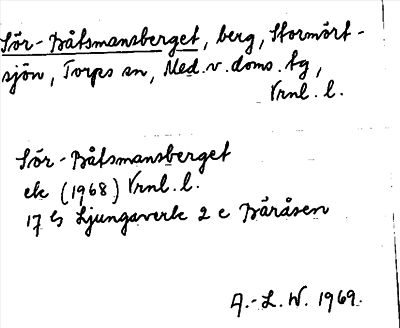 Sör-Båtsmansberget, berg, Stormört-
sjön, Torps sn, Med.v.doms.tg,
Vrnl.l.
Sör-Båtsmansberget
ek (1968) Vrnl.l.
17 G Ljungaverk 2 c Bäråsen
A.-L.W. 1969.